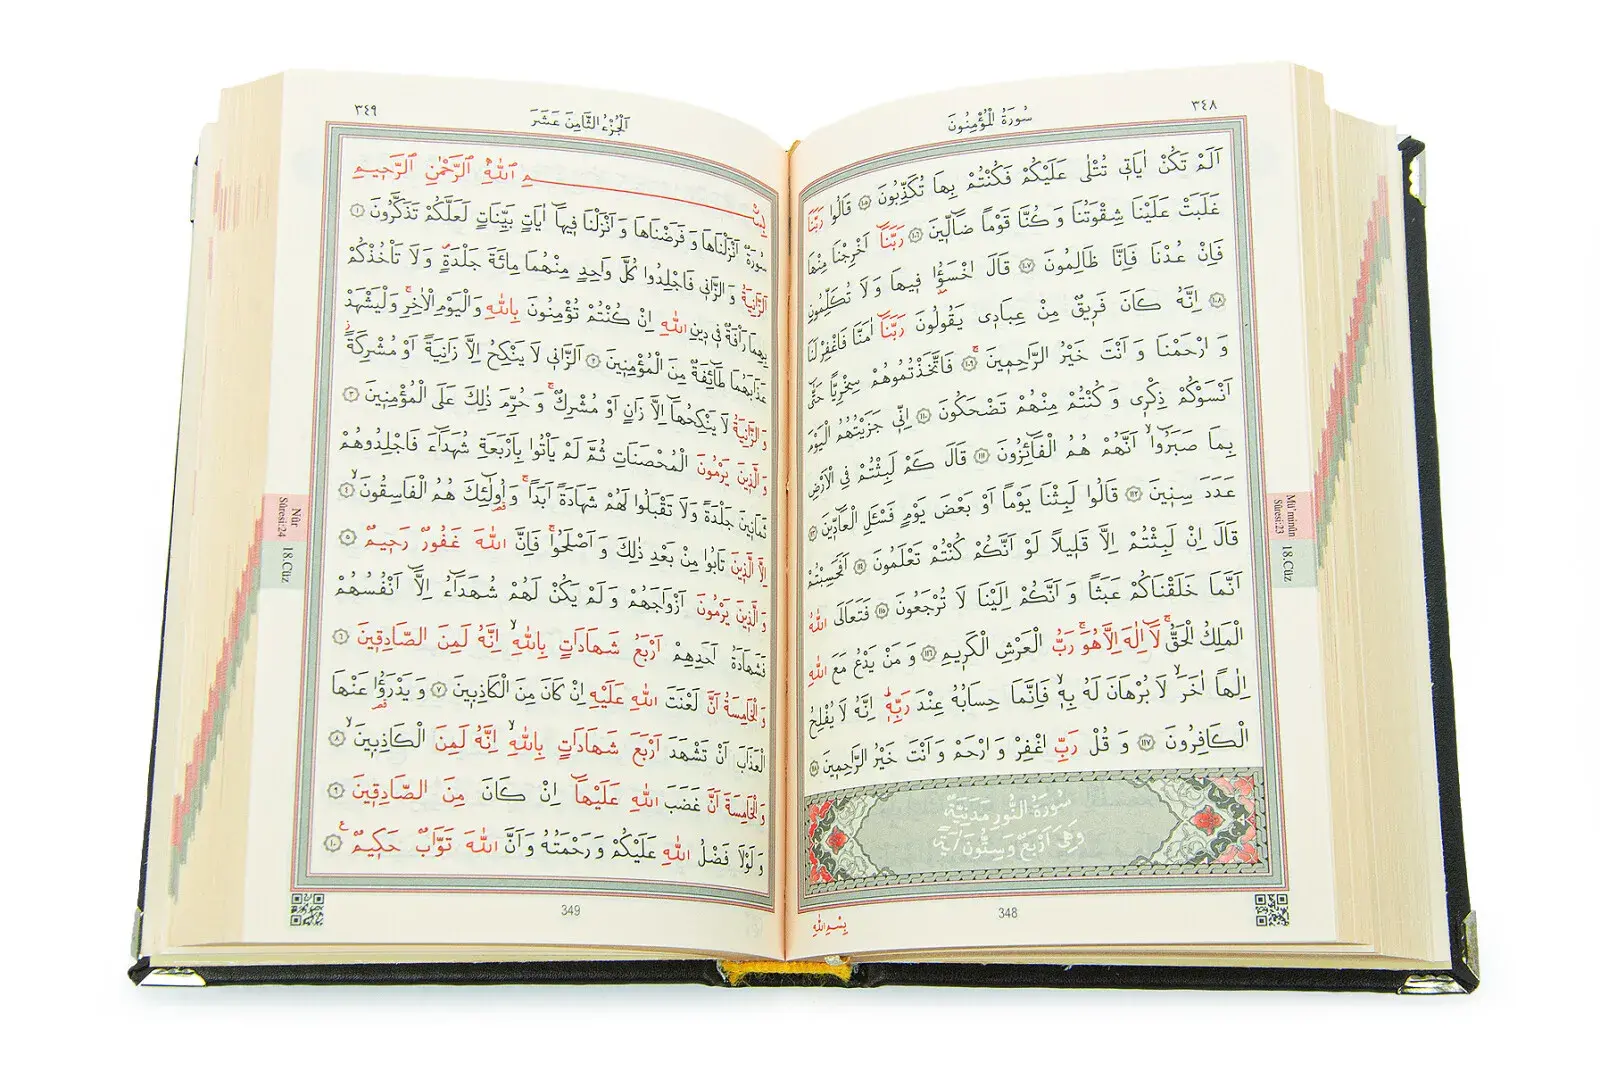 ٣٤٨
سُورَةُ الْمُؤْمِنُونَ
اَلَمْ تَكُنْ اٰيَاتٖي تُتْلٰى عَلَيْكُمْ فَكُنْتُمْ بِهَا تُكَذِّبُونَ ﴿١٠٥﴾ قَالُوا رَبَّنَا
غَلَبَتْ عَلَيْنَا شِقْوَتُنَا وَكُنَّا قَوْمًا ضَٓالّٖينَ ﴿١٠٦﴾ رَبَّنَٓا اَخْرِجْنَا مِنْهَا
فَاِنْ عُدْنَا فَاِنَّا ظَالِمُونَ ﴿١٠٧﴾ قَالَ اخْسَؤُ۫ا فٖيهَا وَلَا تُكَلِّمُونِ
﴿١٠٨﴾ اِنَّهُ كَانَ فَرٖيقٌ مِنْ عِبَادٖي يَقُولُونَ رَبَّنَٓا اٰمَنَّا فَاغْفِرْ لَنَا
وَارْحَمْنَا وَاَنْتَ خَيْرُ الرَّاحِمٖينَ ۚ ﴿١٠٩﴾ فَاتَّخَذْتُمُوهُمْ سِخْرِيًّا حَتّٰٓى
اَنْسَوْكُمْ ذِكْرٖي وَكُنْتُمْ مِنْهُمْ تَضْحَكُونَ ﴿١١٠﴾ اِنّٖي جَزَيْتُهُمُ الْيَوْمَ
بِمَا صَبَرُٓوا ۙ اَنَّهُمْ هُمُ الْفَٓائِزُونَ ﴿١١١﴾ قَالَ كَمْ لَبِثْتُمْ فِي الْاَرْضِ
عَدَدَ سِنٖينَ ﴿١١٢﴾ قَالُوا لَبِثْنَا يَوْمًا اَوْ بَعْضَ يَوْمٍ فَسْـَٔلِ الْعَٓادّٖينَ ﴿١١٣﴾
قَالَ اِنْ لَبِثْتُمْ اِلَّا قَلٖيلًا لَوْ اَنَّكُمْ كُنْتُمْ تَعْلَمُونَ ﴿١١٤﴾ اَفَحَسِبْتُمْ
اَنَّمَا خَلَقْنَاكُمْ عَبَثًا وَاَنَّكُمْ اِلَيْنَا لَا تُرْجَعُونَ ﴿١١٥﴾ فَتَعَالَى اللّٰهُ
الْمَلِكُ الْحَقُّ ۚ لَٓا اِلٰهَ اِلَّا هُوَ ۚ رَبُّ الْعَرْشِ الْكَرٖيمِ ﴿١١٦﴾ وَمَنْ يَدْعُ مَعَ اللّٰهِ
اِلٰهًا اٰخَرَ ۙ لَا بُرْهَانَ لَهُ بِهٖ ۙ فَاِنَّمَا حِسَابُهُ عِنْدَ رَبِّهٖ ؕ اِنَّهُ لَا يُفْلِحُ
الْكَافِرُونَ ﴿١١٧﴾ وَقُلْ رَبِّ اغْفِرْ وَارْحَمْ وَاَنْتَ خَيْرُ الرَّاحِمٖينَ ﴿١١٨﴾
سُورَةُ النُّورِ مَدَنِيَّةٌ
وَهِيَ اَرْبَعٌ وَسِتُّونَ اٰيَةً
Mü'minûn
Sûresi:23
18.Cüz
348
بِسْمِ اللّٰهِ
٣٤٩
اَلْجُزْءُ الثَّامِنَ عَشَرَ
بِسْمِ اللّٰهِ الرَّحْمٰنِ الرَّحٖيمِ
سُورَةٌ اَنْزَلْنَاهَا وَفَرَضْنَاهَا وَاَنْزَلْنَا فٖيهَٓا اٰيَاتٍ بَيِّنَاتٍ لَعَلَّكُمْ تَذَكَّرُونَ ﴿١﴾
اَلزَّانِيَةُ وَالزَّانٖي فَاجْلِدُوا كُلَّ وَاحِدٍ مِنْهُمَا مِائَةَ جَلْدَةٍ وَلَا تَأْخُذْكُمْ
بِهِمَا رَأْفَةٌ فٖي دٖينِ اللّٰهِ اِنْ كُنْتُمْ تُؤْمِنُونَ بِاللّٰهِ وَالْيَوْمِ الْاٰخِرِ ۚ وَلْيَشْهَدْ
عَذَابَهُمَا طَٓائِفَةٌ مِنَ الْمُؤْمِنٖينَ ﴿٢﴾ اَلزَّانٖي لَا يَنْكِحُ اِلَّا زَانِيَةً اَوْ مُشْرِكَةً ؗ
وَالزَّانِيَةُ لَا يَنْكِحُهَٓا اِلَّا زَانٍ اَوْ مُشْرِكٌ ۚ وَحُرِّمَ ذٰلِكَ عَلَى الْمُؤْمِنٖينَ ﴿٣﴾
وَالَّذٖينَ يَرْمُونَ الْمُحْصَنَاتِ ثُمَّ لَمْ يَأْتُوا بِاَرْبَعَةِ شُهَدَٓاءَ فَاجْلِدُوهُمْ
ثَمَانٖينَ جَلْدَةً وَلَا تَقْبَلُوا لَهُمْ شَهَادَةً اَبَدًا ۚ وَاُو۬لٰٓئِكَ هُمُ الْفَاسِقُونَ ۙ ﴿٤﴾
اِلَّا الَّذٖينَ تَابُوا مِنْ بَعْدِ ذٰلِكَ وَاَصْلَحُوا ۚ فَاِنَّ اللّٰهَ غَفُورٌ رَحٖيمٌ ﴿٥﴾
وَالَّذٖينَ يَرْمُونَ اَزْوَاجَهُمْ وَلَمْ يَكُنْ لَهُمْ شُهَدَٓاءُ اِلَّٓا اَنْفُسُهُمْ
فَشَهَادَةُ اَحَدِهِمْ اَرْبَعُ شَهَادَاتٍ بِاللّٰهِ ۙ اِنَّهُ لَمِنَ الصَّادِقٖينَ ﴿٦﴾
وَالْخَامِسَةُ اَنَّ لَعْنَتَ اللّٰهِ عَلَيْهِ اِنْ كَانَ مِنَ الْكَاذِبٖينَ ﴿٧﴾ وَيَدْرَؤُ۬ا عَنْهَا
الْعَذَابَ اَنْ تَشْهَدَ اَرْبَعَ شَهَادَاتٍ بِاللّٰهِ ۙ اِنَّهُ لَمِنَ الْكَاذِبٖينَ ۙ ﴿٨﴾
وَالْخَامِسَةَ اَنَّ غَضَبَ اللّٰهِ عَلَيْهَٓا اِنْ كَانَ مِنَ الصَّادِقٖينَ ﴿٩﴾
وَلَوْلَا فَضْلُ اللّٰهِ عَلَيْكُمْ وَرَحْمَتُهُ وَاَنَّ اللّٰهَ تَوَّابٌ حَكٖيمٌ ﴿١٠﴾
Nûr
Sûresi:24
18.Cüz
349